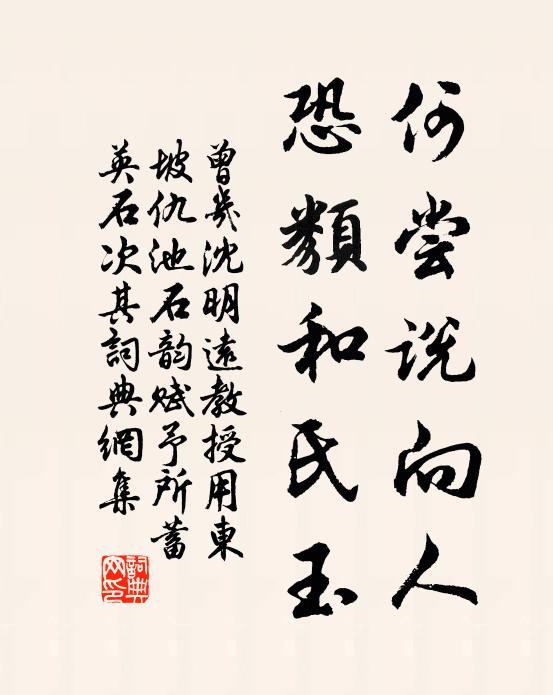 何尝说向人
恐類和氏玉
曾幾沈明遠教授用東
坡仇池石韵赋予所蓄
英石次其詞典網集
詞典网印